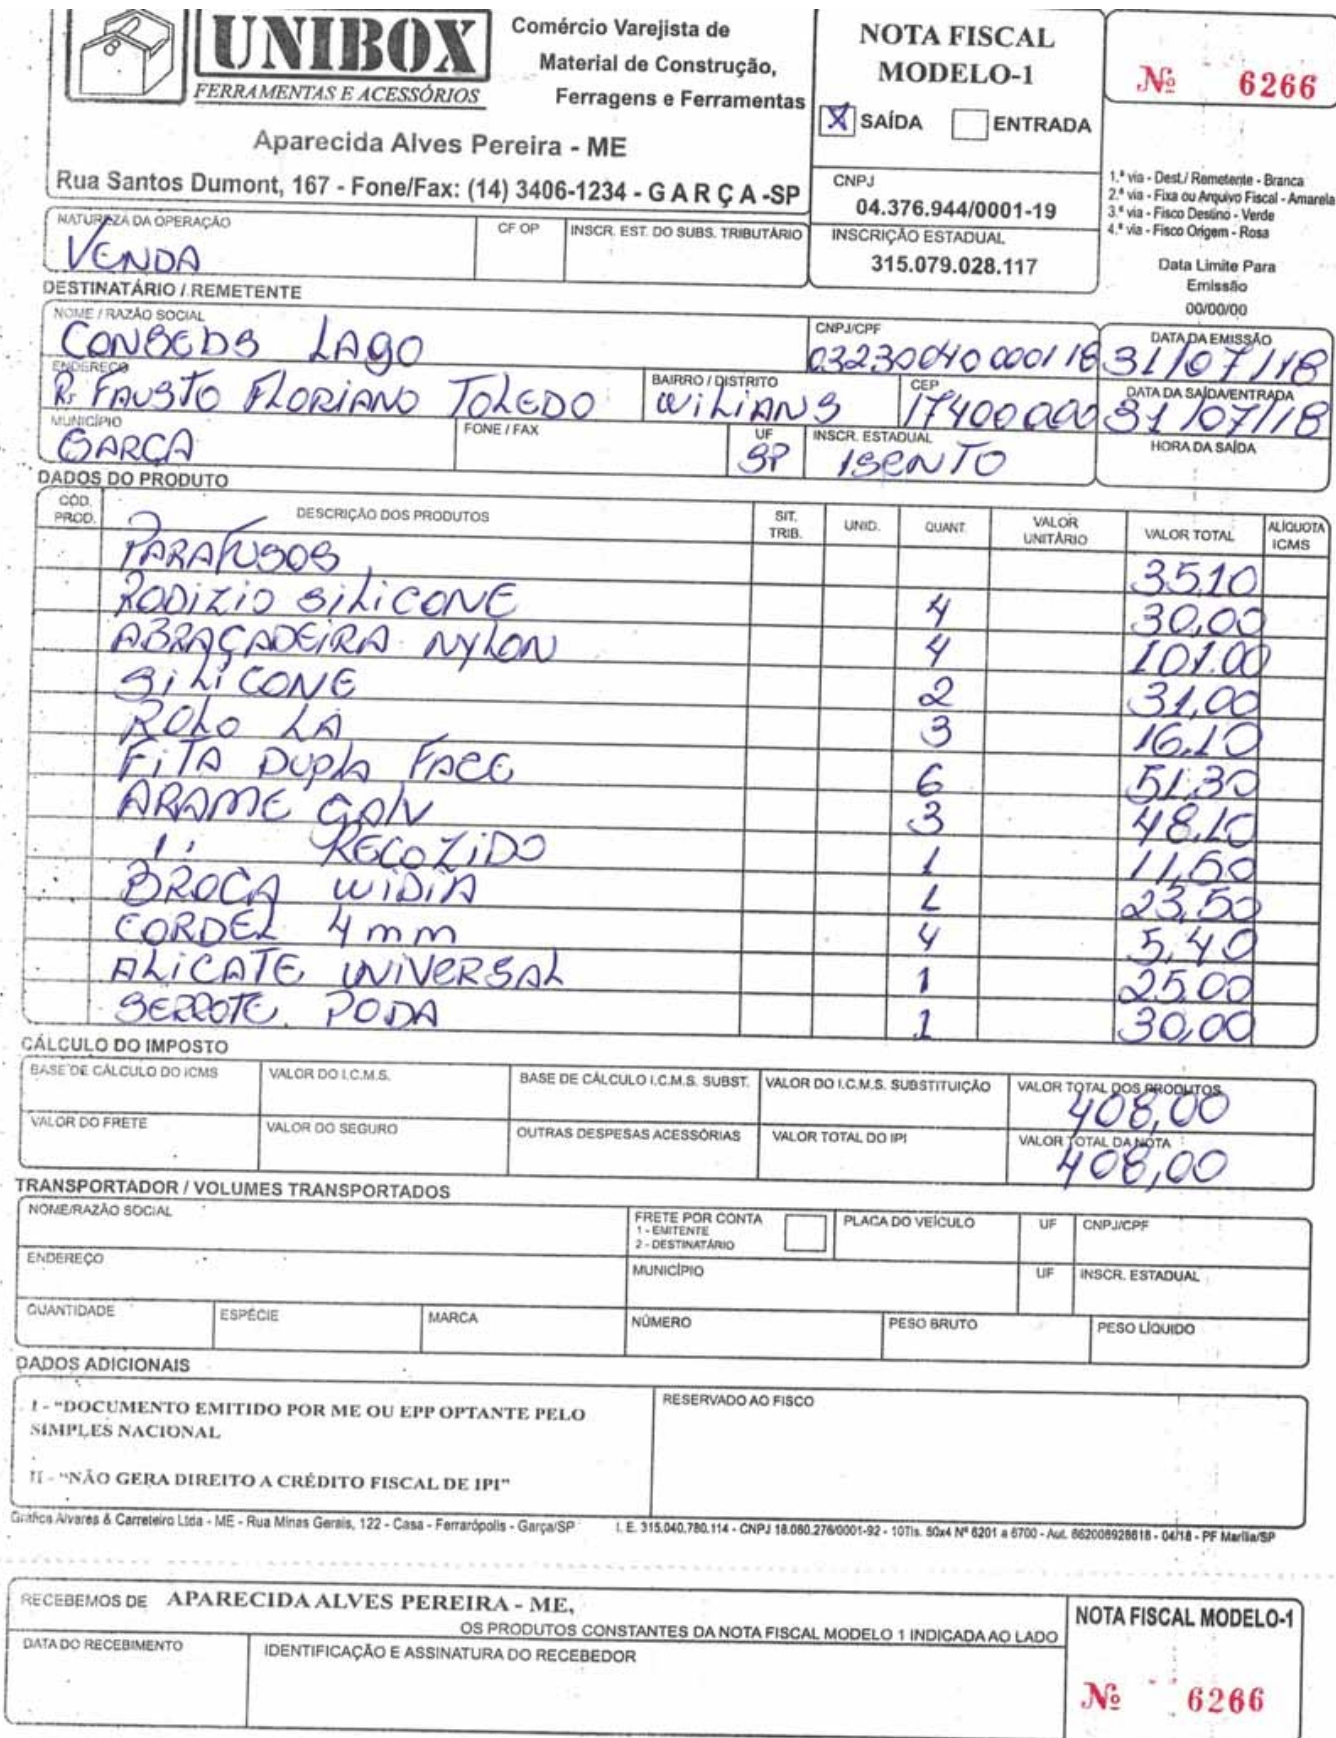 UNIBOX
FERRAMENTAS E ACESSÓRIOS
Comércio Varejista de
Material de Construção,
Ferragens e Ferramentas
Aparecida Alves Pereira - ME
Rua Santos Dumont, 167 - Fone/Fax: (14) 3406-1234 - GARÇA-SP
NOTA FISCAL
MODELO-1
X SAÍDA ENTRADA
CNPJ
04.376.944/0001-19
INSCRIÇÃO ESTADUAL
315.079.028.117
Nº 6266
1.ª via - Dest./ Remetente - Branca
2.ª via - Fixa ou Arquivo Fiscal - Amarela
3.ª via - Fisco Destino - Verde
4.ª via - Fisco Origem - Rosa
Data Limite Para
Emissão
00/00/00
NATUREZA DA OPERAÇÃO CF OP INSCR. EST. DO SUBS. TRIBUTÁRIO
VENDA
DESTINATÁRIO / REMETENTE
NOME / RAZÃO SOCIAL CNPJ/CPF DATA DA EMISSÃO
LAGO 03230040 0001 18 31/07/18
ENDEREÇO BAIRRO / DISTRITO CEP DATA DA SAÍDA/ENTRADA
R. FAUSTO FLORIANO TOLEDO WILIANS 17400 000 31/07/18
MUNICÍPIO FONE / FAX UF INSCR. ESTADUAL HORA DA SAÍDA
GARÇA SP ISENTO
DADOS DO PRODUTO
CÓD. PROD. DESCRIÇÃO DOS PRODUTOS SIT. TRIB. UNID. QUANT. VALOR UNITÁRIO VALOR TOTAL ALÍQUOTA ICMS
PARAFUSOS 35,10
RODIZIO SILICONE 4 30,00
ABRAÇADEIRA NYLON 4 101,00
SILICONE 2 31,00
ROLO LA 3 16,10
FITA DUPLA FACE 6 51,30
ARAME GALV 3 48,10
'' RECOZIDO 1 11,50
BROCA WIDIA 1 23,50
CORDEL 4mm 4 5,40
ALICATE UNIVERSAL 1 25,00
SERROTE PODA 1 30,00
CÁLCULO DO IMPOSTO
BASE DE CÁLCULO DO ICMS VALOR DO I.C.M.S. BASE DE CÁLCULO I.C.M.S. SUBST. VALOR DO I.C.M.S. SUBSTITUIÇÃO VALOR TOTAL DOS PRODUTOS
408,00
VALOR DO FRETE VALOR DO SEGURO OUTRAS DESPESAS ACESSÓRIAS VALOR TOTAL DO IPI VALOR TOTAL DA NOTA
408,00
TRANSPORTADOR / VOLUMES TRANSPORTADOS
NOME/RAZÃO SOCIAL FRETE POR CONTA PLACA DO VEÍCULO UF CNPJ/CPF
1 - EMITENTE
2 - DESTINATÁRIO
ENDEREÇO MUNICÍPIO UF INSCR. ESTADUAL
QUANTIDADE ESPÉCIE MARCA NÚMERO PESO BRUTO PESO LÍQUIDO
DADOS ADICIONAIS
I - "DOCUMENTO EMITIDO POR ME OU EPP OPTANTE PELO
SIMPLES NACIONAL
II - "NÃO GERA DIREITO A CRÉDITO FISCAL DE IPI"
RESERVADO AO FISCO
Gráfica Alvares & Carreteiro Ltda - ME - Rua Minas Gerais, 122 - Casa - Ferrarópolis - Garça/SP I. E. 315.040.780.114 - CNPJ 18.060.276/0001-92 - 10Tls. 50x4 Nº 6201 a 6700 - Aut. 662008928618 - 04/18 - PF Marília/SP
RECEBEMOS DE APARECIDA ALVES PEREIRA - ME,
OS PRODUTOS CONSTANTES DA NOTA FISCAL MODELO 1 INDICADA AO LADO
DATA DO RECEBIMENTO IDENTIFICAÇÃO E ASSINATURA DO RECEBEDOR
NOTA FISCAL MODELO-1
Nº 6266